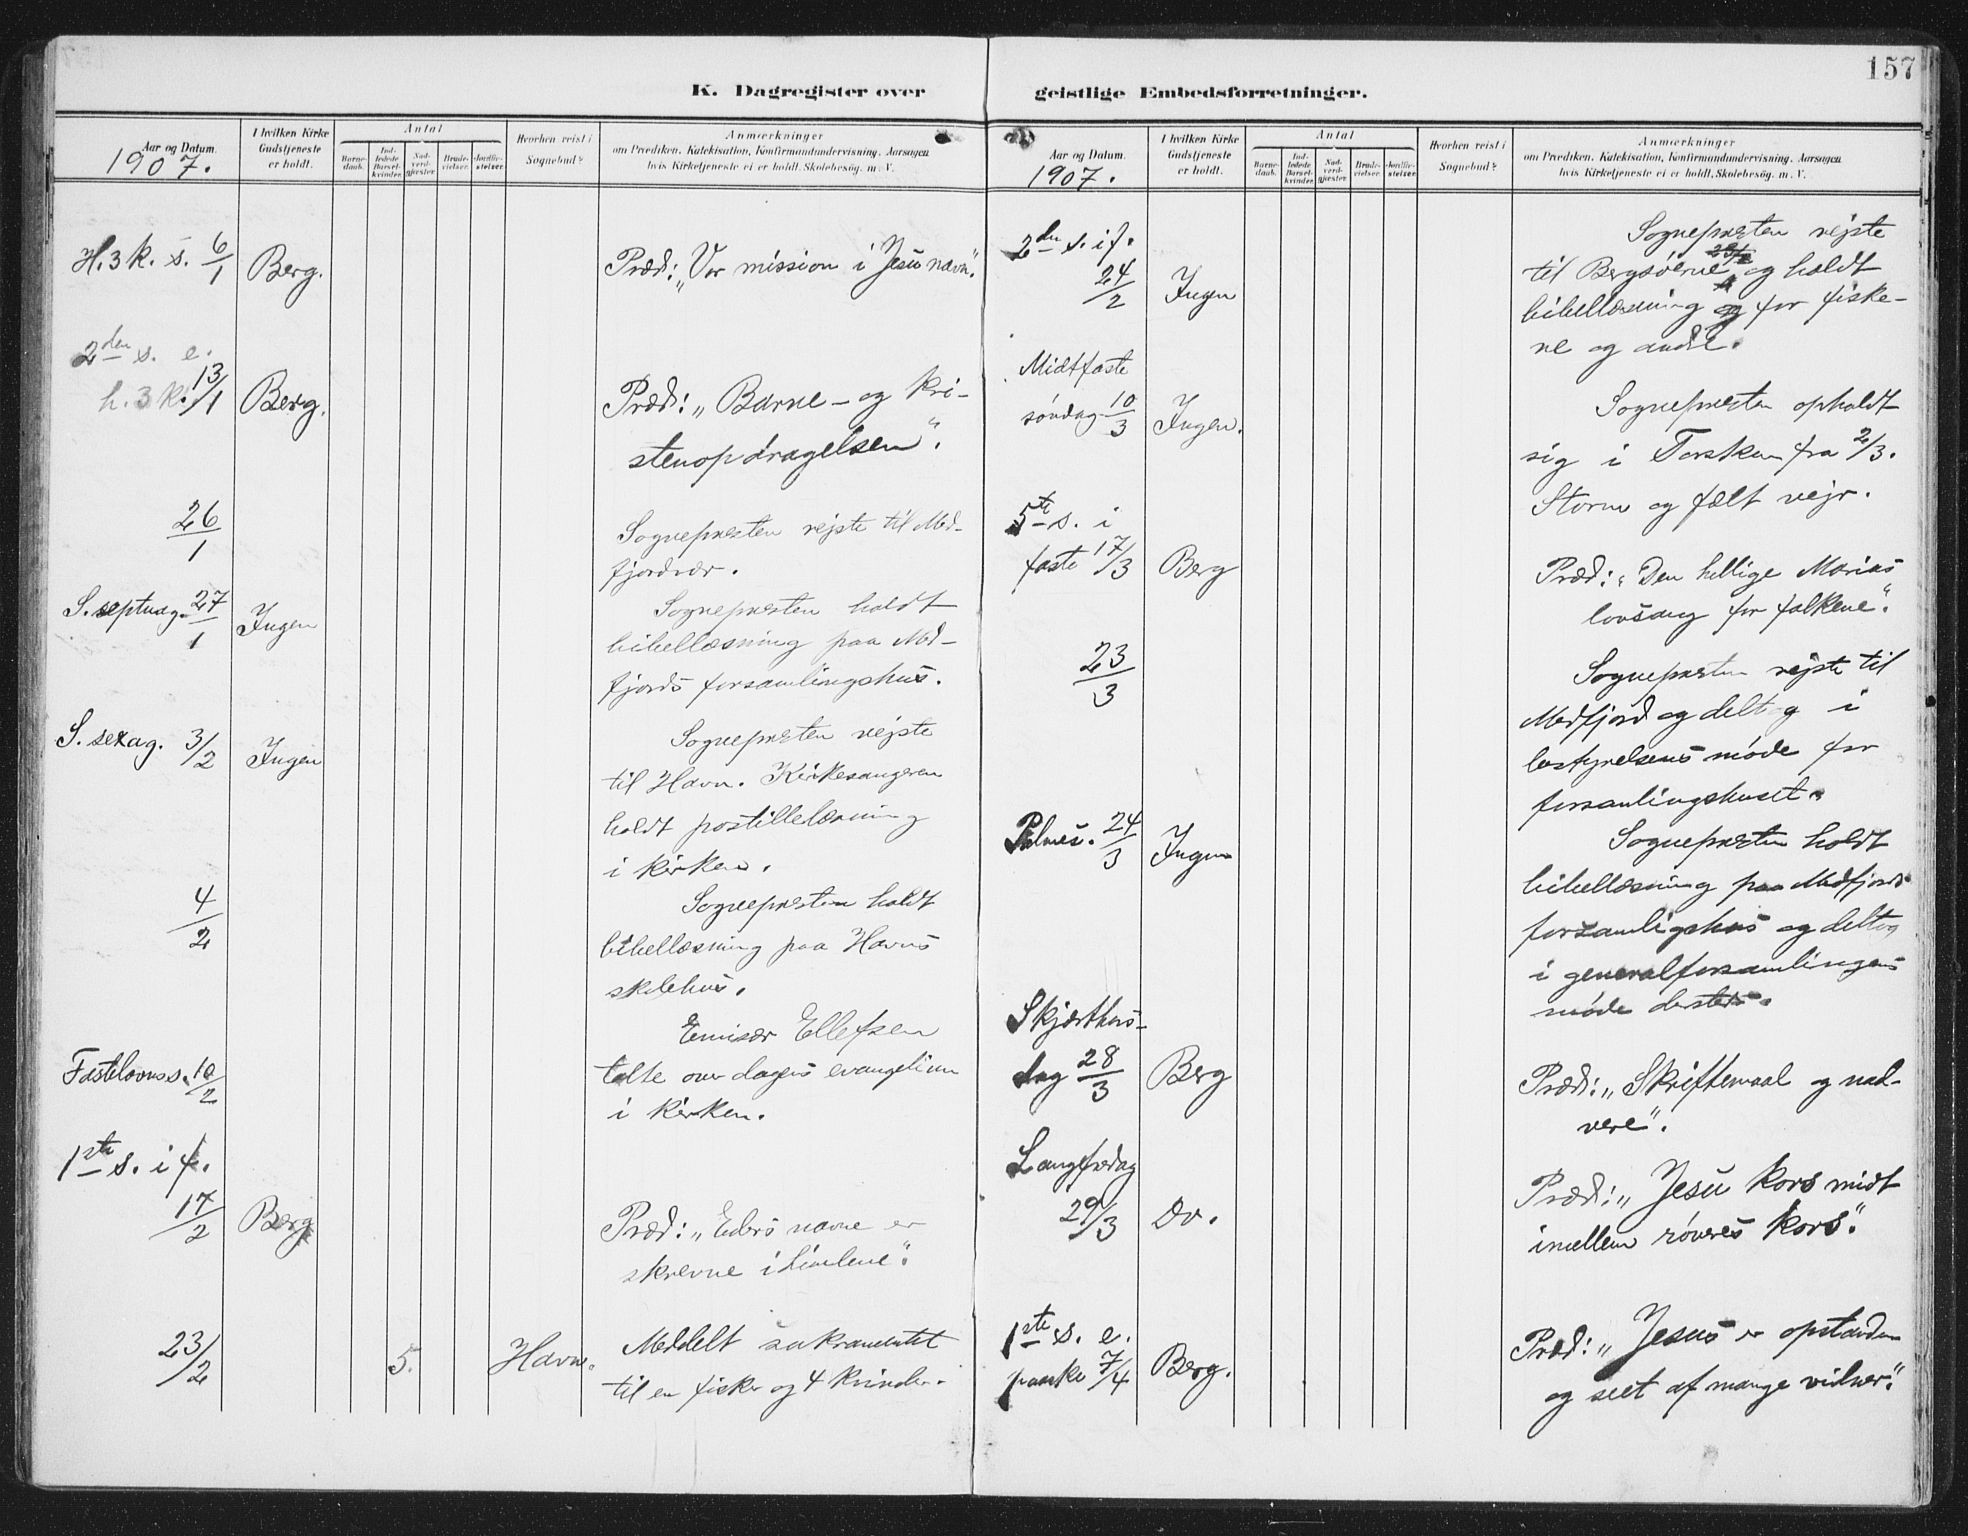 157
K. Dagregister over
Aar og Datum.
1907.
I hvilken Kirke Gudstjeneste er holdt.
Antal
Barnedaab.
Indledede Barselkvinder.
Nadverdgjæster.
Brudevielser.
Jordfæstelser.
Hvorhen reist i Sognebud?
Anmærkninger
om Prædiken, Katekisation, Konfirmandundervisning, Aarsagen
hvis Kirketjeneste ei er holdt, Skolebesøg. m. V.
H. 3 k. s. 6/1 Berg. Præd: „Vor mission i Jesu navn“.
2den s. e.
h. 3 k. 13/1 Berg. Præd: „Barne- og kri-
stenopdragelsen“.
26/1 Sognepresten rejste til Med-
fjordvær.
S. septuag. 27/1 Ingen Sognepresten holdt
bibellæsning paa Med-
fjords forsamlingshus.
S. sexag. 3/2 Ingen Sognepresten rejste
til Havn. Kirkesangeren
holdt postillelæsning
i kirken.
4/2 Sognepresten holdt
bibellæsning paa Havns
skolehus.
Emisær Ellefsen
Fastelavnss. 10/2 talte over dagens evangelium
i kirken.
1ste s. i f.
17/2 Berg Præd: „Eders navne er
skrevne i himlene“.
23/2 5. Havn. Meddelt sakramentet
til en fisker og 4 kvinder.
geistlige Embedsforretninger.
Aar og Datum.
1907.
I hvilken Kirke Gudstjeneste er holdt.
Antal
Barnedaab.
Indledede Barselkvinder.
Nadverdgjæster.
Brudevielser.
Jordfæstelser.
Hvorhen reist i Sognebud?
Anmærkninger
om Prædiken, Katekisation, Konfirmandundervisning, Aarsagen
hvis Kirketjeneste ei er holdt, Skolebesøg. m. V.
2den s. i f. Sognepresten rejste
24/2 Ingen til Bergsøerne 23/2 og holdt
bibellæsning for fiske-
ne og andre.
Midtfaste
søndag 10/3 Ingen. Sognepresten opholdt
sig i Torsken fra 2/3.
Storm og fælt vejr.
5te s. i
faste 17/3 Berg Præd: „Den hellige Marias
lovsang for folkene“.
23/3 Sognepresten rejste til
Medfjord og deltog i
bestyrelsens møde for
forsamlingshuset.
Palmes. 24/3 Ingen Sognepresten holdt
bibellæsning paa Medfjords
forsamligshus og deltog
i generalforsamlingens
møde dersteds.
Skjærthors-
dag 28/3 Berg Præd: „Skriftemaal og nad-
vere“.
Langfredag
29/3 Do. Præd: „Jesu kors midt
imellem røveres kors“.
1ste s. e.
paaske 7/4 Berg. Præd: „Jesus er opstanden
og seet af mange vidner“.